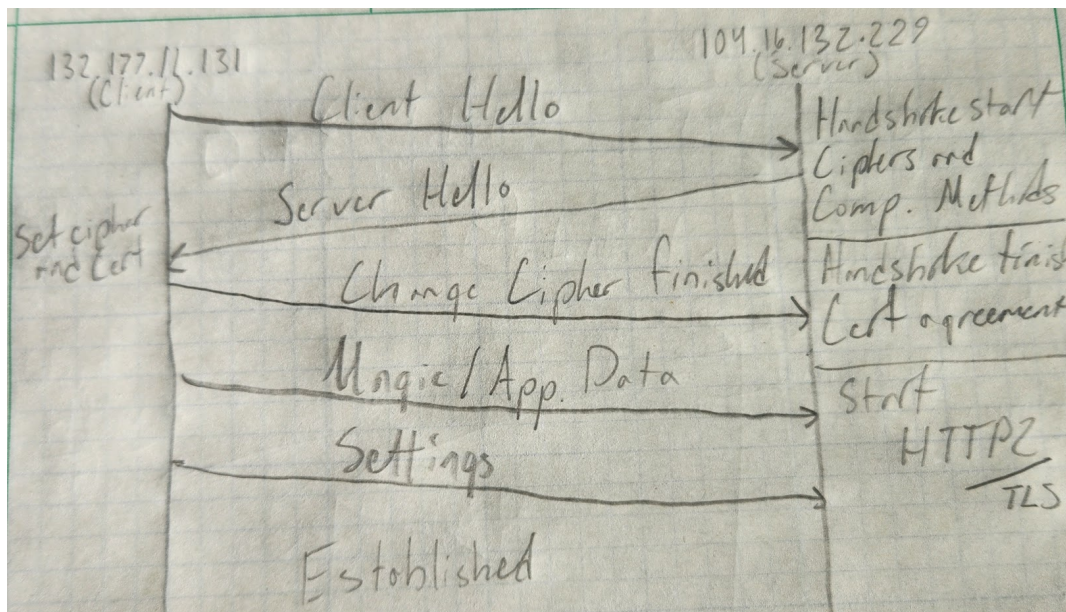 132.177.11.131
(Client)
104.16.132.229
(Server)
Client Hello
Handshake start
Ciphers and
Comp. Methods
Server Hello
Set cipher
and Cert
Change Cipher finished
Handshake finish
Cert agreement
Magic/App. Data
Start
HTTP2
/TLS
Settings
Established